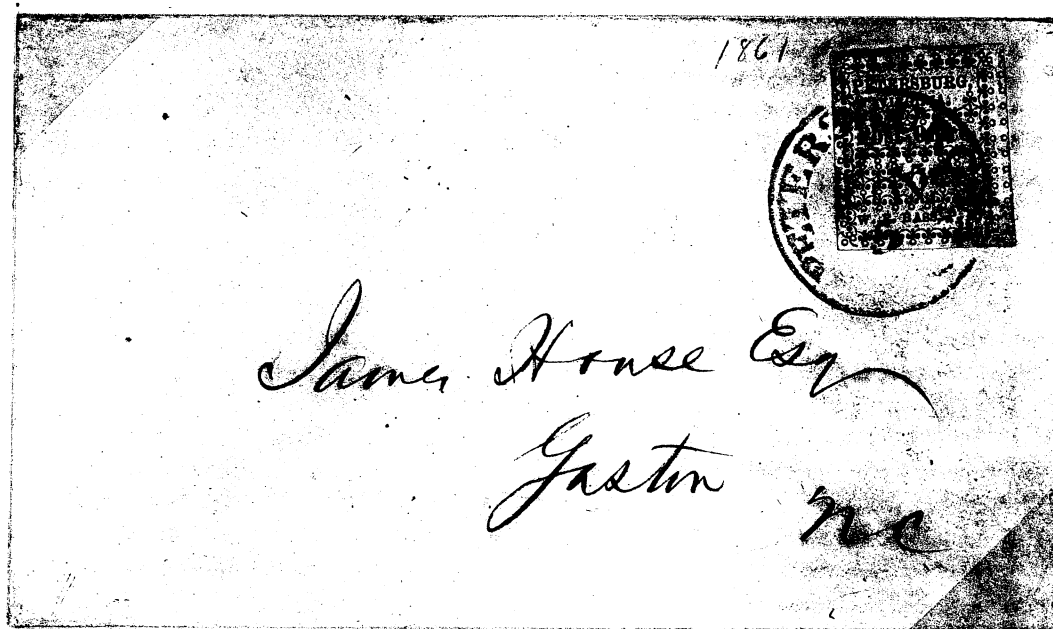 1861
PETERSBURG
PETERS
James House Esq
Gaston
NC